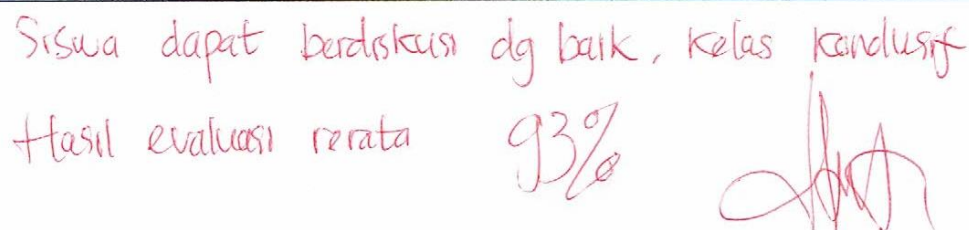 Siswa dapat berdiskusi dg baik, kelas kondusif
Hasil evaluasi rerata 93%